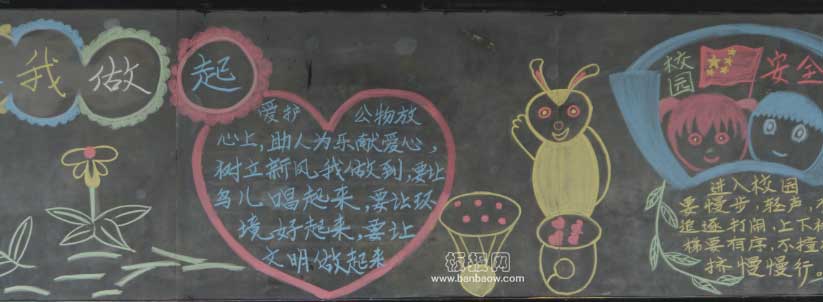 我做起
爱护 公物放
心上，助人为乐献爱心，
树立新风我做到，要让
鸟儿唱起来，要让环
境好起来，要让
文明做起来
板报网
www.banbaow.com
校园
安全
进入校园
要慢步，轻声，
追逐打闹，上下楼
梯要有序，不撞
挤慢慢行。